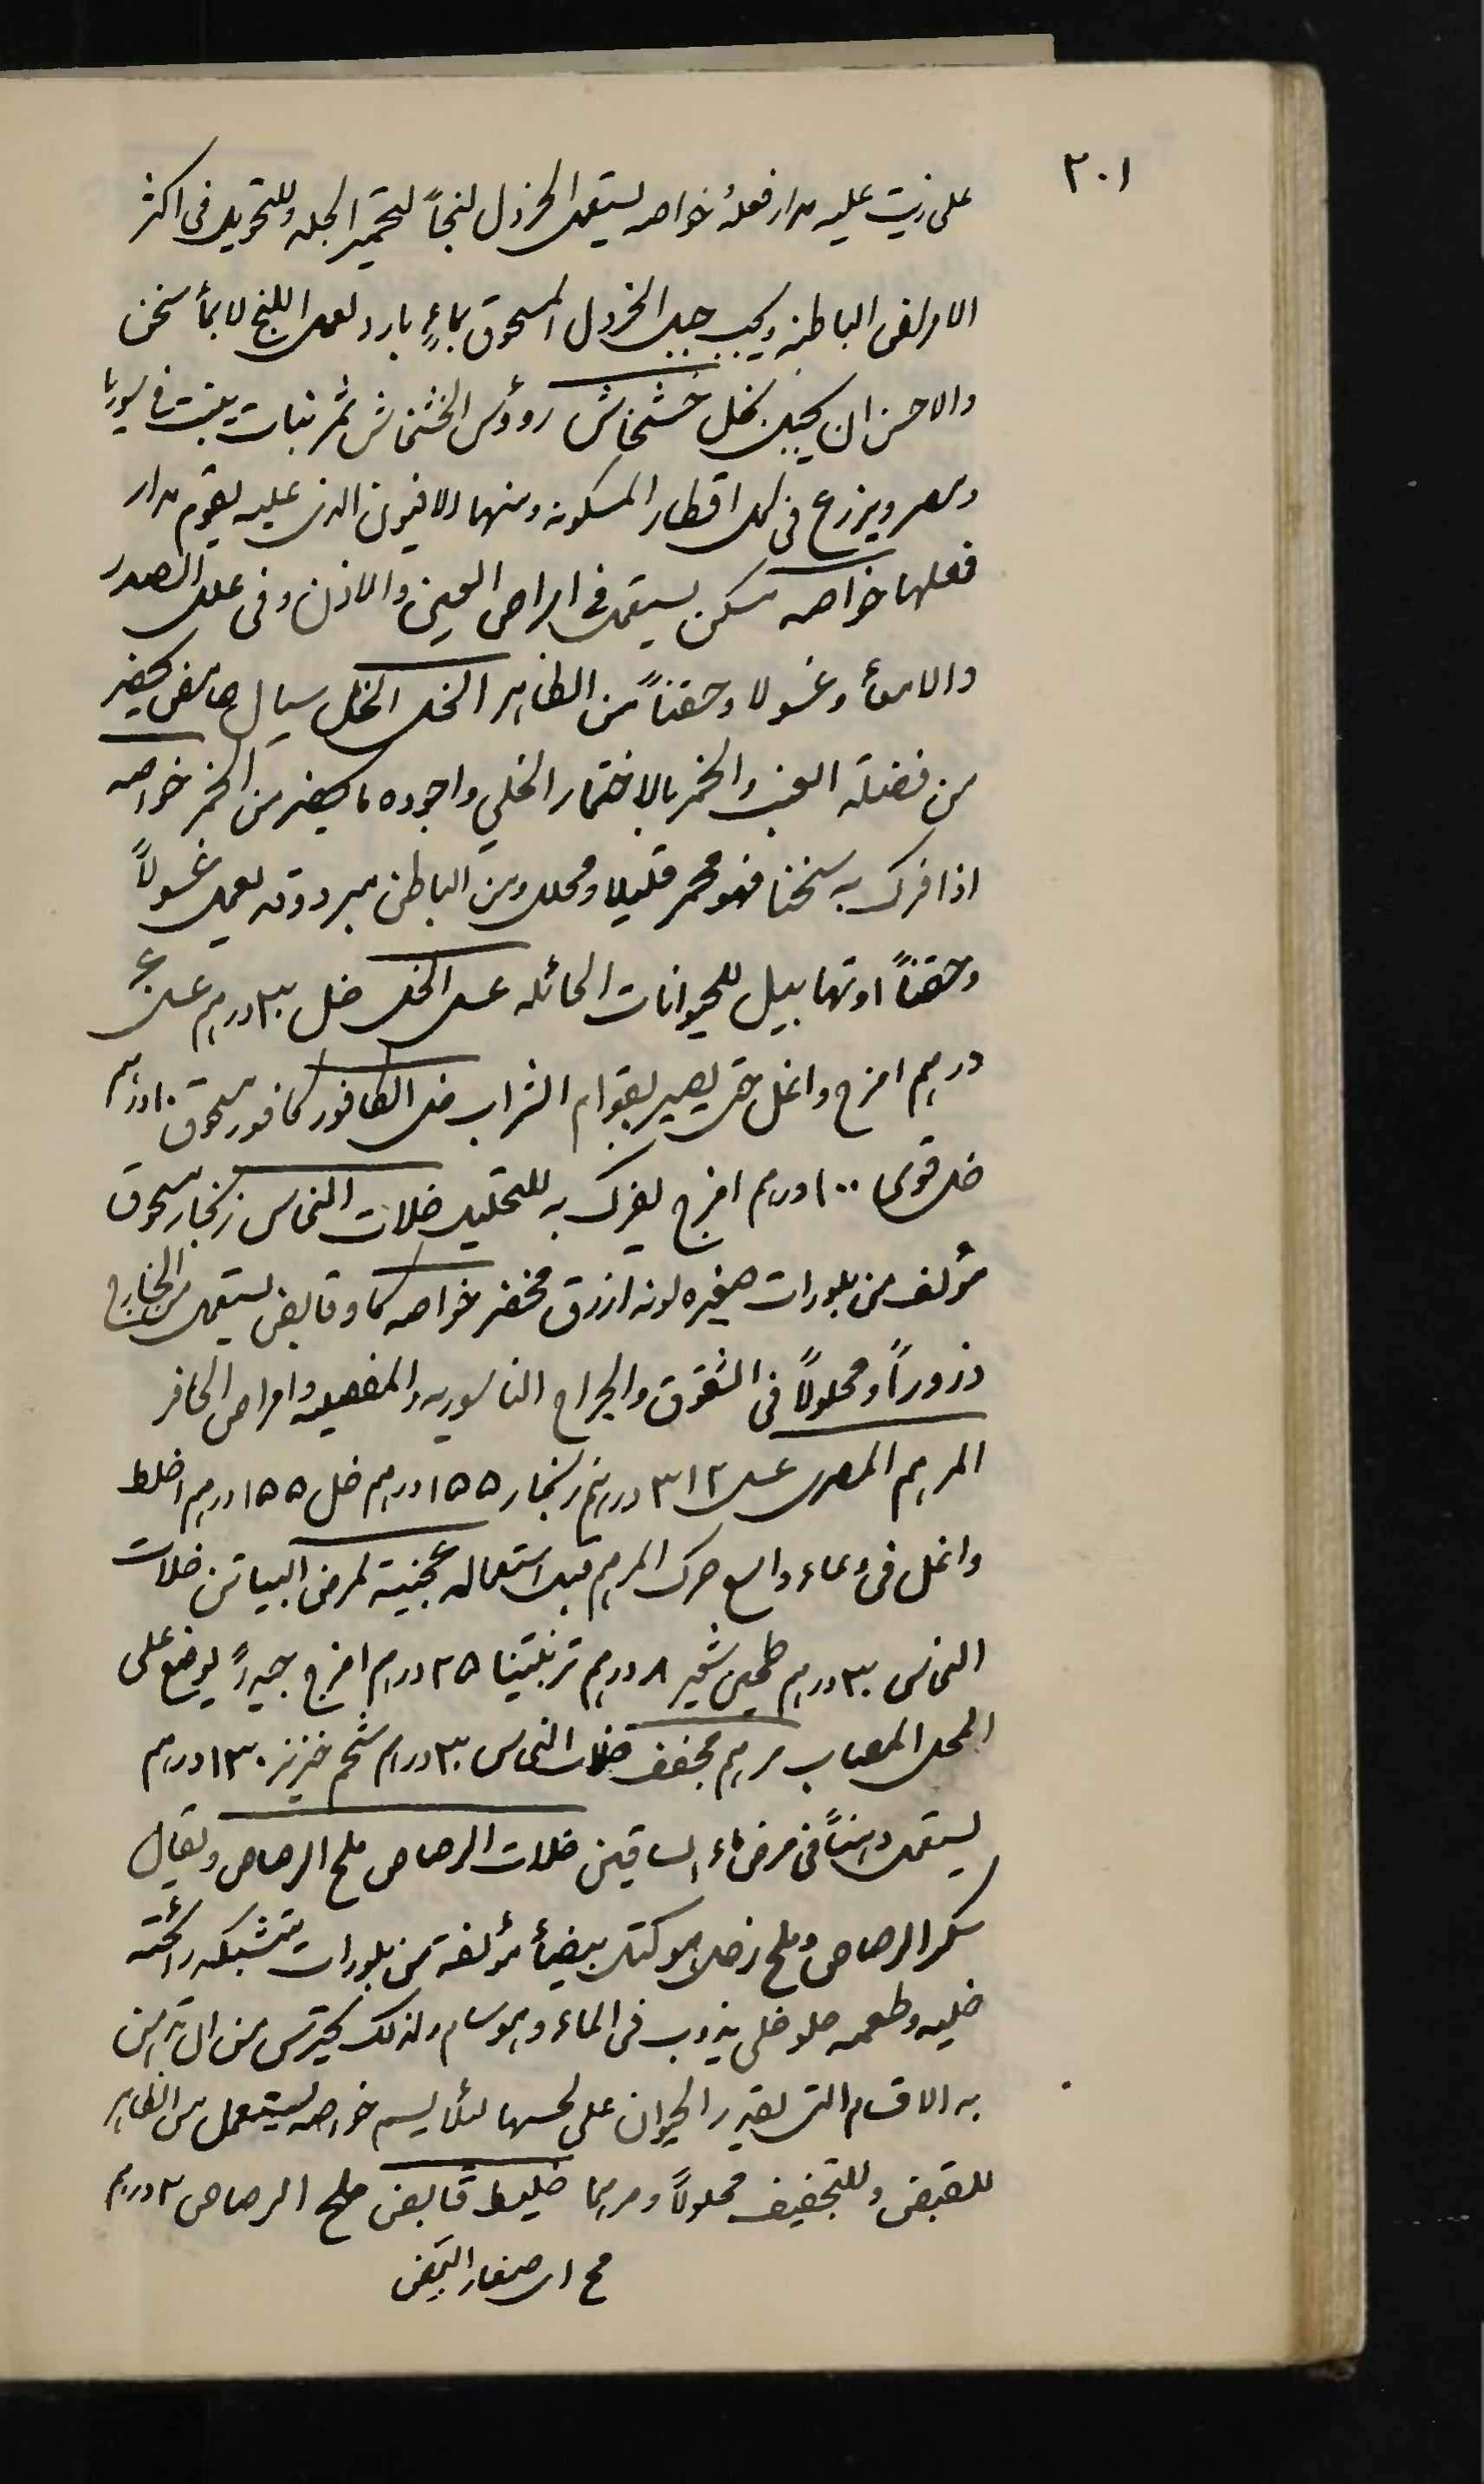 ٢٠١
على زيت عليه مدار فعله خواصه يستعمل الخردل لبخاً لتحمير الجلد وللتحويل فى اكثر
الامراض الباطنه ويجب جبل الخردل المسحوق بماءٍ بارد لعمل اللبخ لا بماء سخن
والاحسن ان يجبل بخل خشخاش روؤس الخشخاش ثمر نبات ينبت فى سوريا
ومصر ويزرع فى كل اقطار المسكونه ومنها الافيون الذى عليه يقوم مدار
فعلها خواصه مسكن يستعمل فى امراض العين والاذن وفى علل الصدر
والامعاء وغسولا وحقناً من الظاهر الخل الخل سيال حامض يحضر
من فضلة العنب والخمر بالاختمار الخلي واجوده ما يحضر من الخمر خواصه
اذا فرك به سخنا فهو محمر قليلا ومحلل ومن الباطن مبرد وقد يعمل غسولاً
وحقناً او تهابيل للحيوانات الحائله عسل الخل خل ٣٠ درهم عسل
درهم امزج واغل حتى يصير بقوام الشراب خل الكافور كافور مسحوق ١٠ درهم
خل قوى ١٠٠ درهم امزج يفرك به للتحليل خلات النحاس زنجار مسحوق
مؤلف من بلورات صغيره لونه ازرق مخضر خواصه كاو وقابض يستعمل من الخارج
ذروراً ومحلولاً فى الشقوق والجراح الناسوريه والمفصليه وامراض الحافر
المرهم المصرى عسل ٣١٢ درهم زنجار ١٥٥ درهم خل ١٥٥ درهم اخلط
واغل فى وعاء واسع حرك المرهم قبل استعماله عجينة لمرض البياتن خلات
النحاس ٣٠ درهم طحين شعير ٨ درهم تربنتينا ٢٥ درهم امزج جيداً يوضع على
المحل المصاب مرهم مجفف خلات النحاس ٣٠ درهم شحم خنزير ١٣٠ درهم
يستعمل دهناً فى مرض ماء الساقين خلات الرصاص ملح الرصاص ويقال
سكر الرصاص وملح زحل هو كتل بيضاء مؤلفة من بلورات متشبكه رائحته
خليه وطعمه حلو خلى يذوب فى الماء وهو سام ولذلك يحترس من ان يدهن
به الاقسام التى يقدر الحيوان على لحسها لئلا يسم خواصه يستعمل من الظاهر
للقبض وللتجفيف محلولاً ومرهما خليط قابض ملح الرصاص ٢ درهم
مح اى صفار البيض